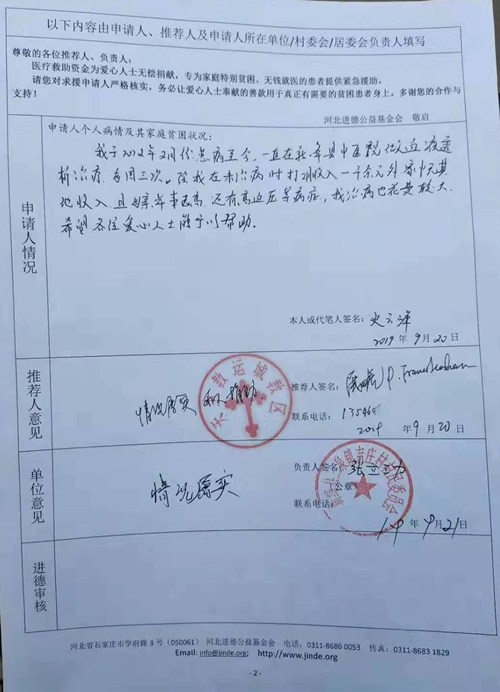 以下内容由申请人、推荐人及申请人所在单位/村委会/居委会负责人填写
尊敬的各位推荐人、负责人：
医疗救助资金为爱心人士无偿捐献，专为家庭特别贫困、无钱就医的患者提供紧急援助。
请您对求援申请人严格核实，务必让爱心人士奉献的善款用于真正有需要的贫困患者身上。多谢您的合作与
支持！
河北进德公益基金会 敬启
申请人情况
申请人个人病情及其家庭贫困状况：
我于2012年2月份患病至今，一直在新绛县中医院做血液透
析治疗，每周三次。除我在未治病时打工收入一千余元外 家中无其
他收入，且母亲年事已高，还有高血压等病症，我治病也花费较大
希望各位爱心人士能予以帮助.
本人或代笔人签名：
2019 年 9 月 20 日
推荐人意见
天主教运城教区
情况属实
推荐人签名：
联系电话： 1354
2019 年 9 月 20 日
单位意见
情况属实
负责人签名：
（公章）
联系电话：
19 年 9 月 21 日
村民委员会
进德审核
河北省石家庄市学府路 3 号（050061） 河北进德公益基金会 电话：0311-8686 0053 传真：0311-8683 1829
Email: info@jinde.org; http://www.jinde.org
- 2 -